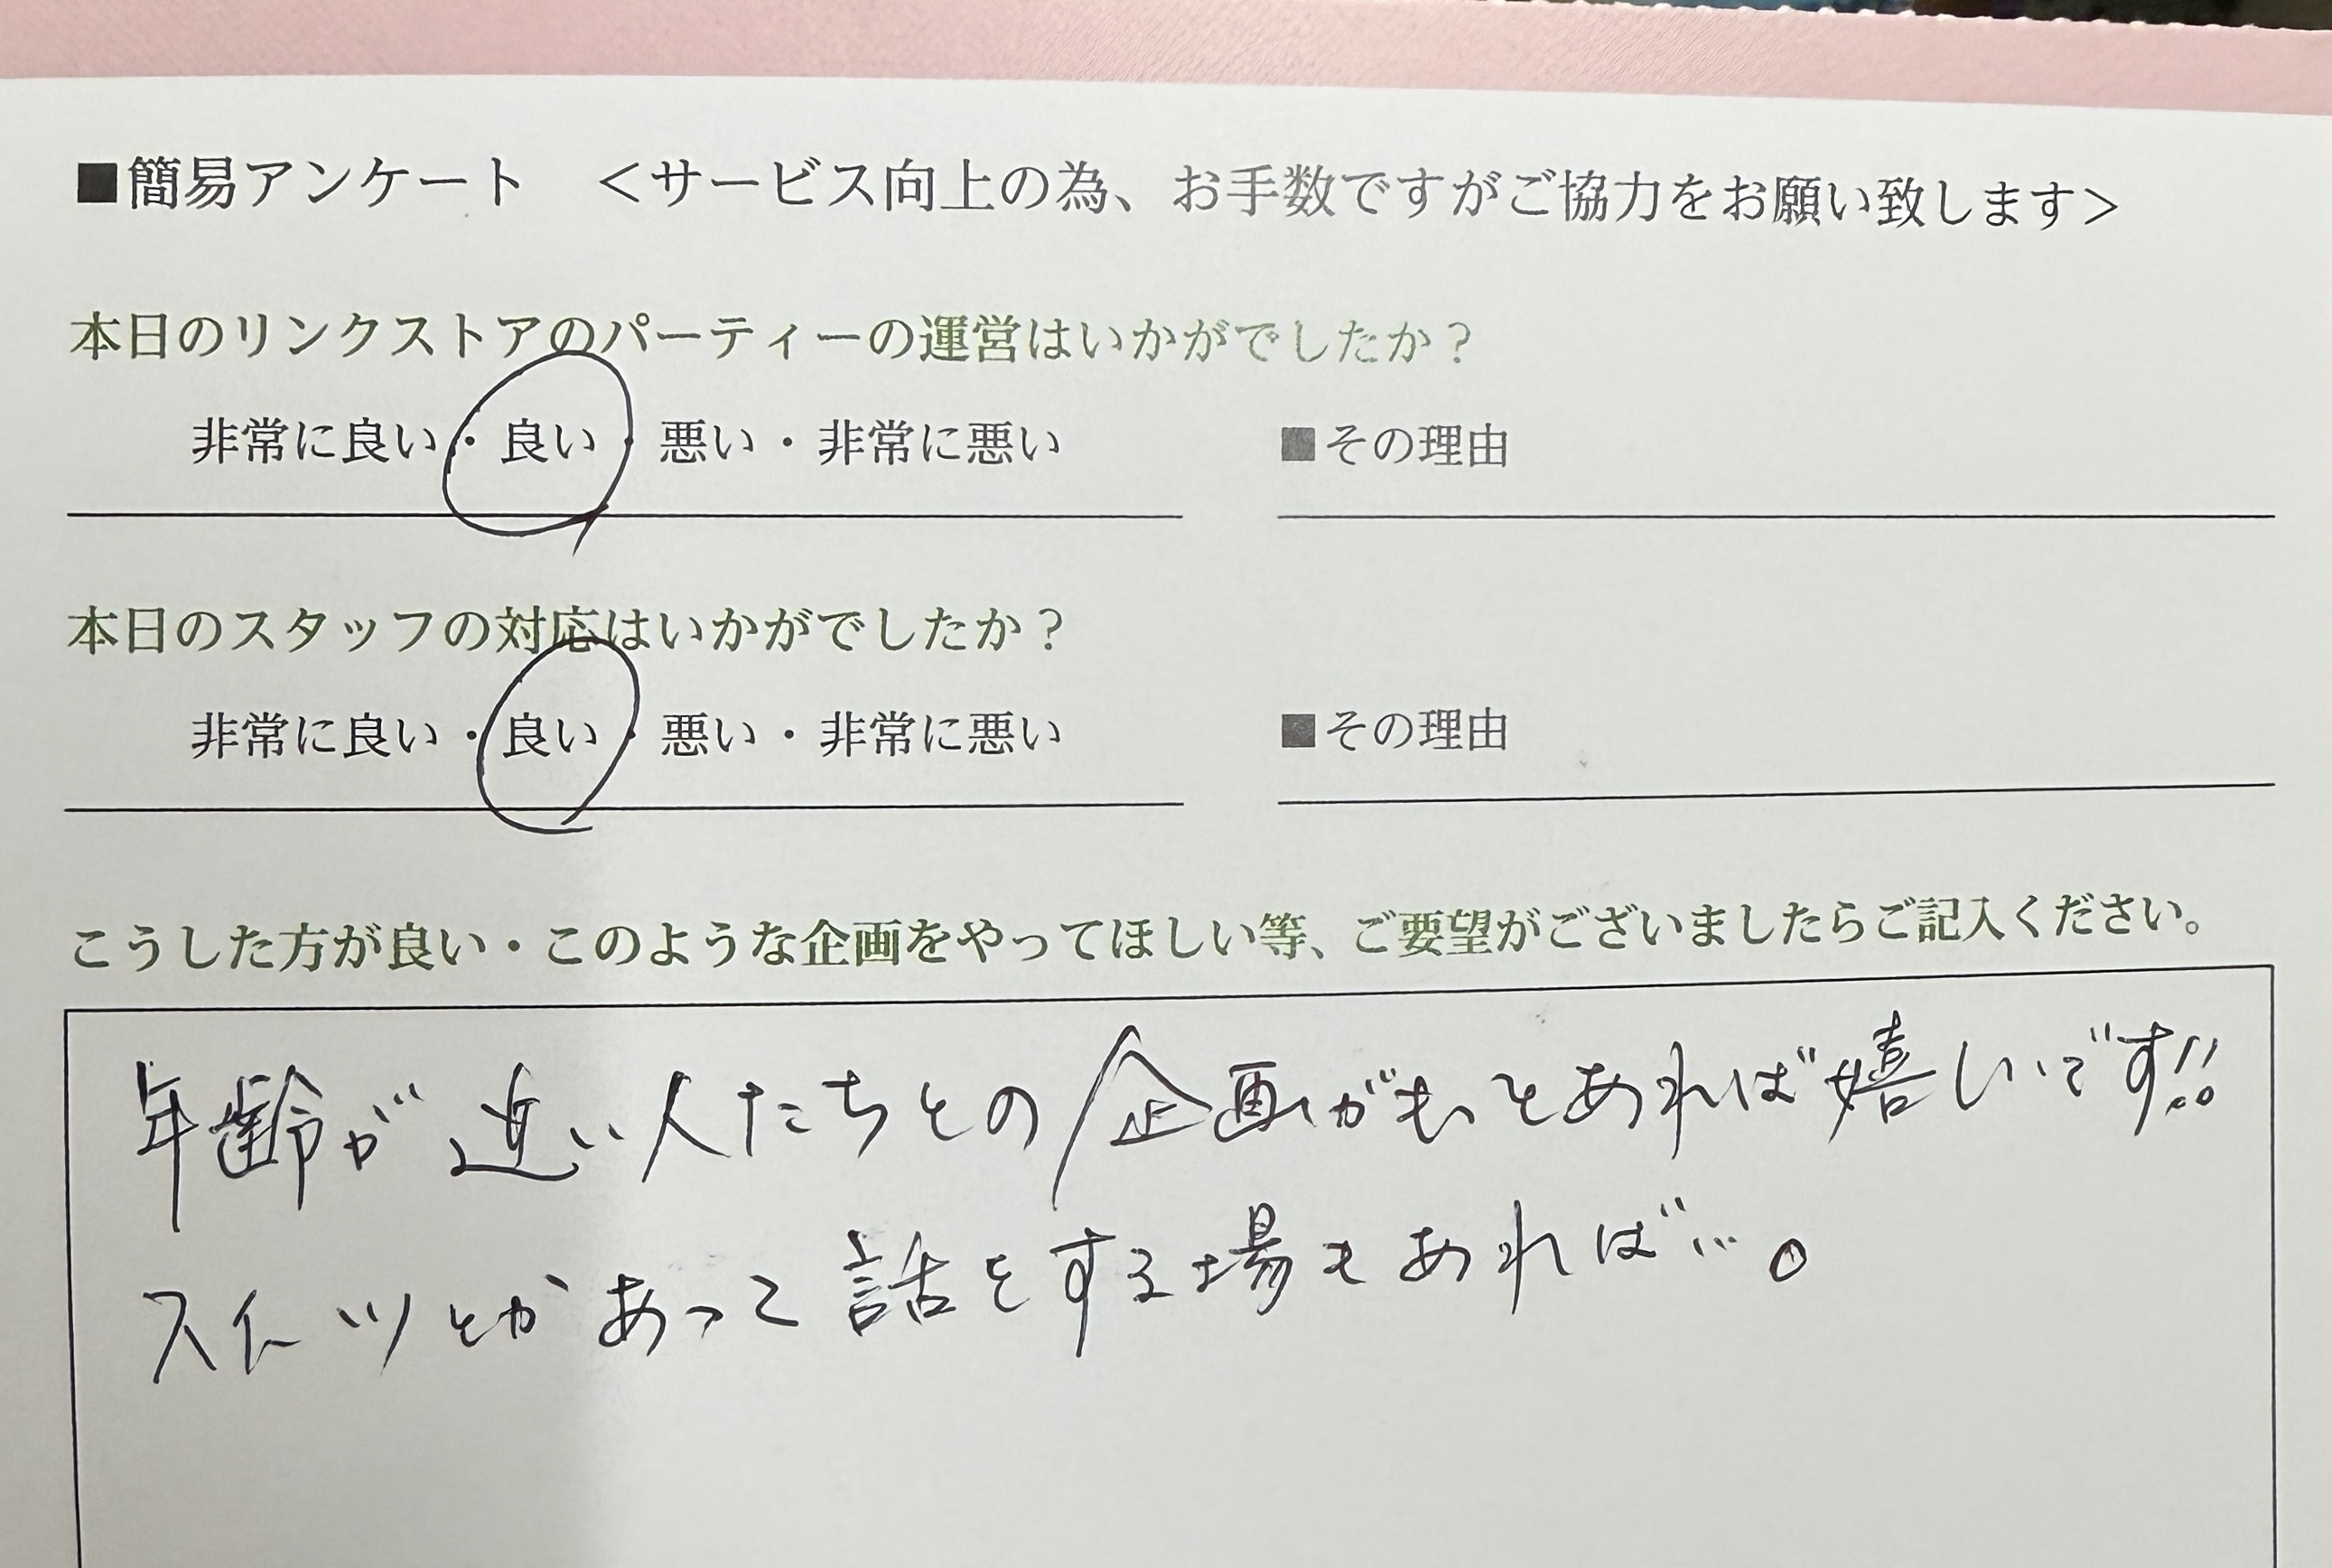 ■簡易アンケート　＜サービス向上の為、お手数ですがご協力をお願い致します＞
本日のリンクストアのパーティーの運営はいかがでしたか？
非常に良い・良い・悪い・非常に悪い　■その理由
本日のスタッフの対応はいかがでしたか？
非常に良い・良い・悪い・非常に悪い　■その理由
こうした方が良い・このような企画をやってほしい等、ご要望がございましたらご記入ください。
年齢が近い人たちとの企画がもっとあれば嬉しいです!!
スイーツとかあって話をする場もあれば…。